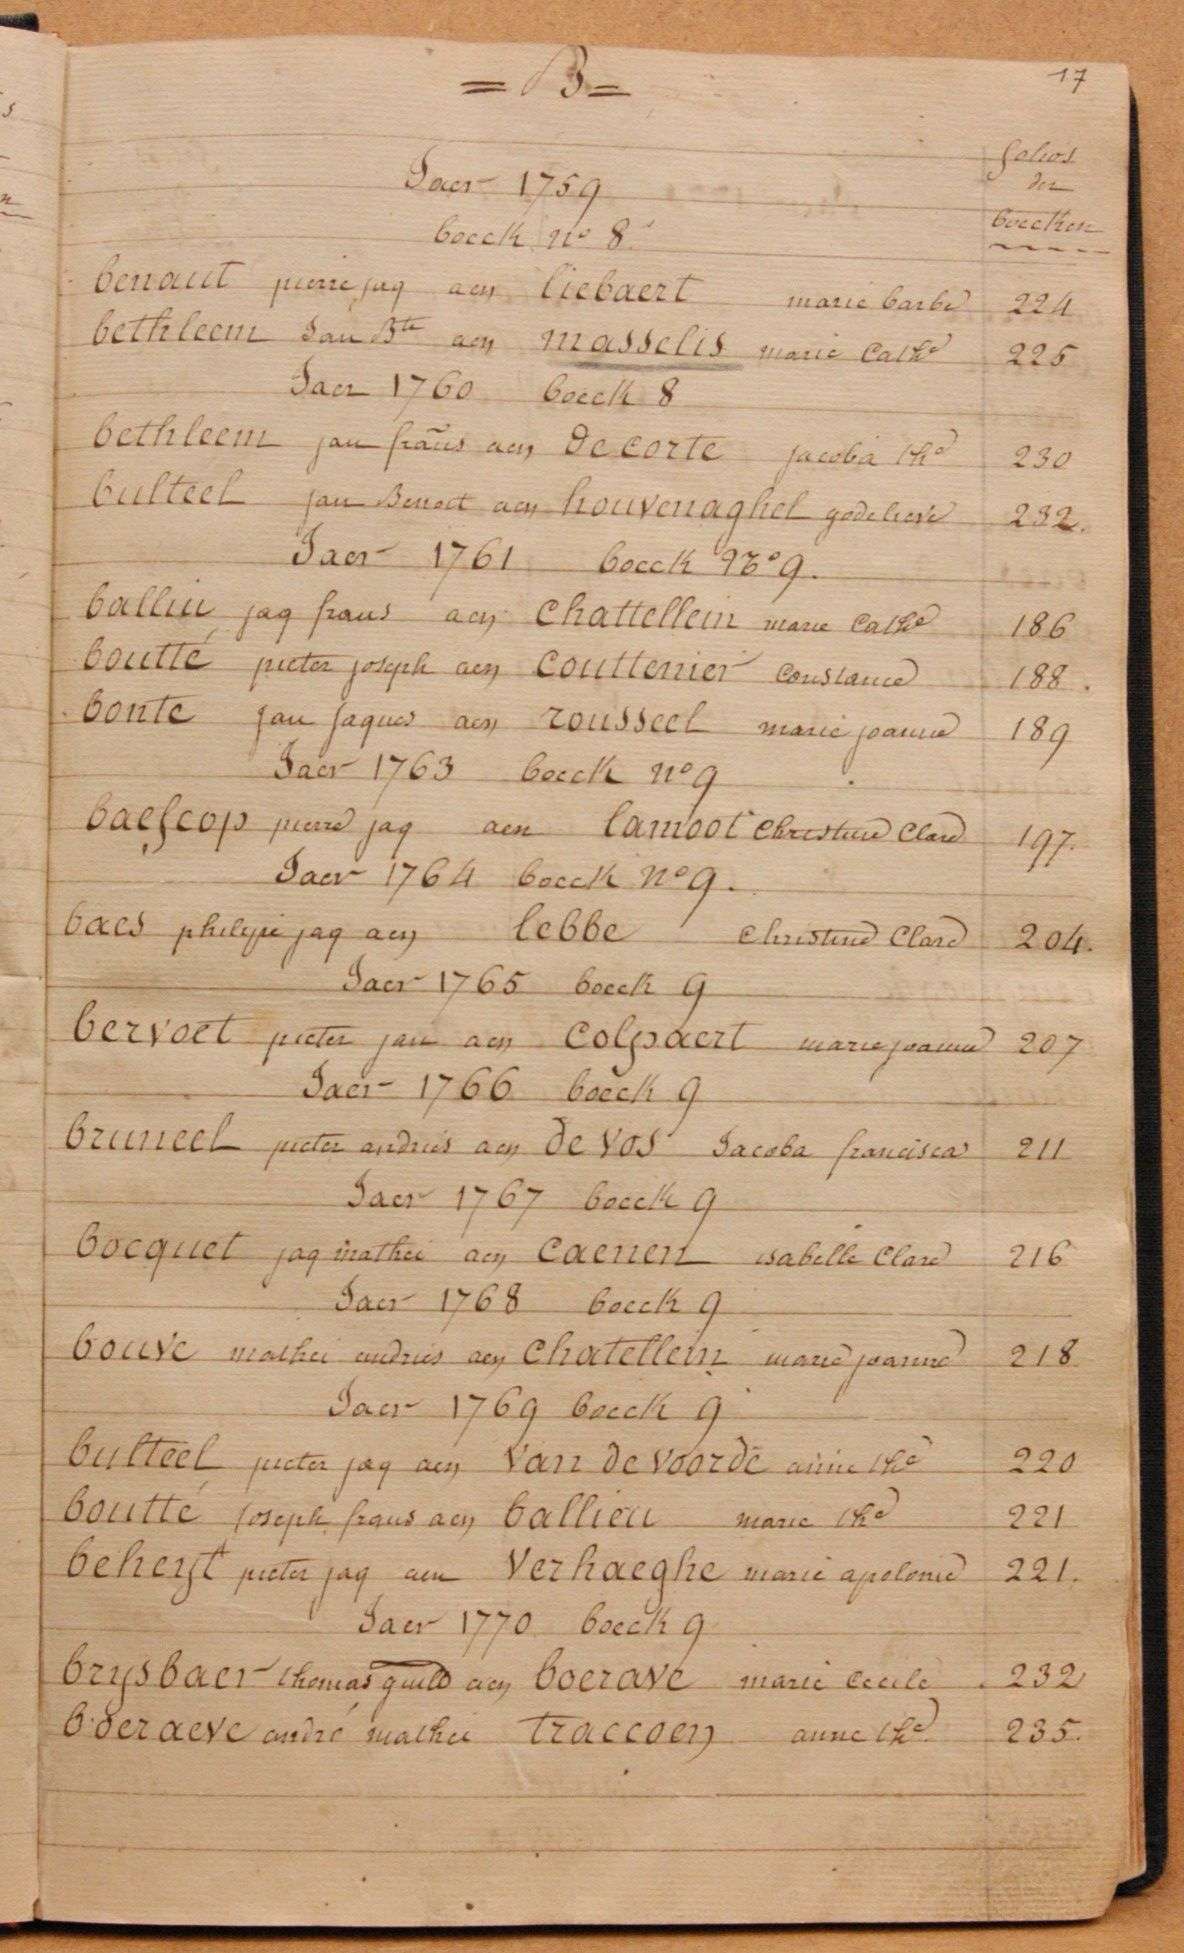 = B =
17
folios
der
boecken
Jaer 1759
boeck nº 8
benaut pierre jaq aen liebaert marie barbe 224
bethleem Jan Bte aen masselis marie Cathe 225
Jaer 1760 boeck 8
bethleem jan frans aen De corte jacoba the 230
bulteel jan Benoit aen houvenaghel godelieve 232.
Jaer 1761 boeck Nº 9.
balliu jaq frans aen Chattellein marie Cathe 186
boutté pieter joseph aen Couttenier Constance 188.
bonte jan jaques aen rousseel marie joanne 189
Jaer 1763 boeck nº 9
baescop pierre jaq aen lamoot Christine Clare 197.
Jaer 1764 boeck nº 9.
baes philipe jaq aen lebbe Christine Clare 204.
Jaer 1765 boeck 9
bervoet pieter jan aen Colpaert marie joanne 207
Jaer 1766 boeck 9
bruneel pieter andries aen de vos Jacoba francisca 211
Jaer 1767 boeck 9
bocquet jaq mathei aen Caenen isabelle Clare 216
Jaer 1768 boeck 9
bouve mathei andries aen Chatellein marie joanne 218
Jaer 1769 boeck 9
bulteel pieter jaq aen van de voorde anne the 220
boutté joseph frans aen ballieu marie the 221
beheyt pieter jaq aen Verhaeghe marie apolonie 221.
Jaer 1770 boeck 9
brysbaer thomas guild aen boerave marie Cecile 232
boeraeve andré mathei traccoen anne the 235.